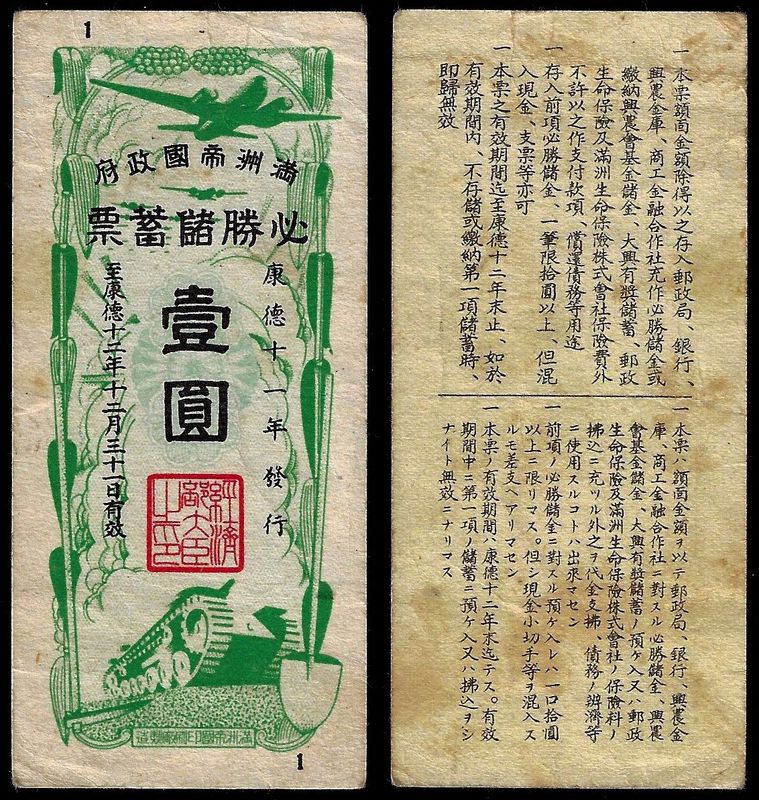 1
府政國帝洲滿
票蓄儲勝必
康德十一年發行
壹圓
至康德十二年十二月三十一日有效
經濟部大臣之印
造製廠刷印國帝洲滿
1
一 本票額面金額除得以之存入郵政局、銀行、
興農金庫、商工金融合作社充作必勝儲金或
繳納興農會基金儲金、大興有獎儲蓄、郵政
生命保險及滿洲生命保險株式會社保險費外
不許以之作支付款項、償還債務等用途
一 存入前項必勝儲金、一筆限拾圓以上、但混
入現金、支票等亦可
一 本票之有效期間迄至康德十二年末止、如於
有效期間內、不存儲或繳納第一項儲蓄時、
即歸無效
一 本票ハ額面金額ヲ以テ郵政局、銀行、興農金
庫、商工金融合作社ニ對スル必勝儲金、興農
會基金儲金、大興有獎儲蓄ノ預ケ入又ハ郵政
生命保險及滿洲生命保險株式會社ノ保險料ノ
拂込ニ充ツル外之ヲ代金支拂、債務ノ辨濟等
ニ使用スルコトハ出來マセン
一 前項ノ必勝儲金ニ對スル預ケ入レハ一口拾圓
以上ニ限リマス。但シ現金小切手等ヲ混入ス
ルモ差支ヘアリマセン
一 本票ノ有效期間ハ康德十二年末迄デス。有效
期間中ニ第一項ノ儲蓄ニ預ケ入又ハ拂込ヲシ
ナイト無效ニナリマス